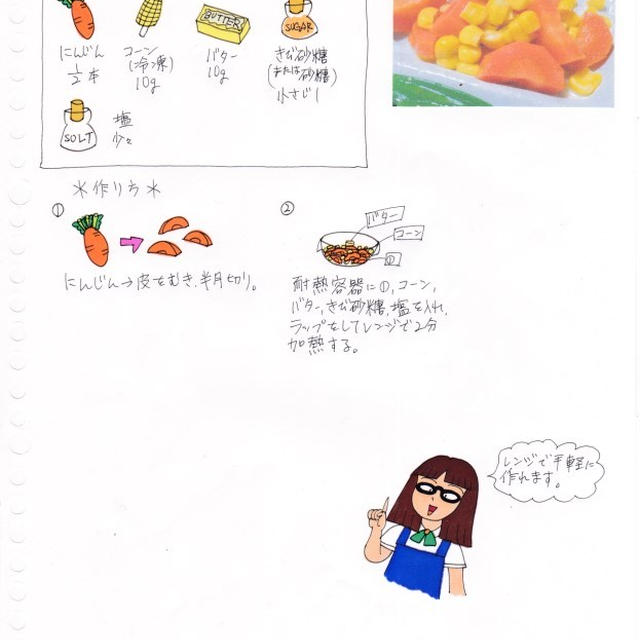 BUTTER
SUGAR
にんじん
1/2本
コーン
(冷凍)
10g
バター
10g
きび砂糖
(または砂糖)
小さじ1
SOLT
塩
少々
*作り方*
①
にんじん→皮をむき、半月切り。
②
バター
コーン
①
耐熱容器に①、コーン、
バター、きび砂糖、塩を入れ、
ラップをしてレンジで2分
加熱する。
レンジで手軽に
作れます。